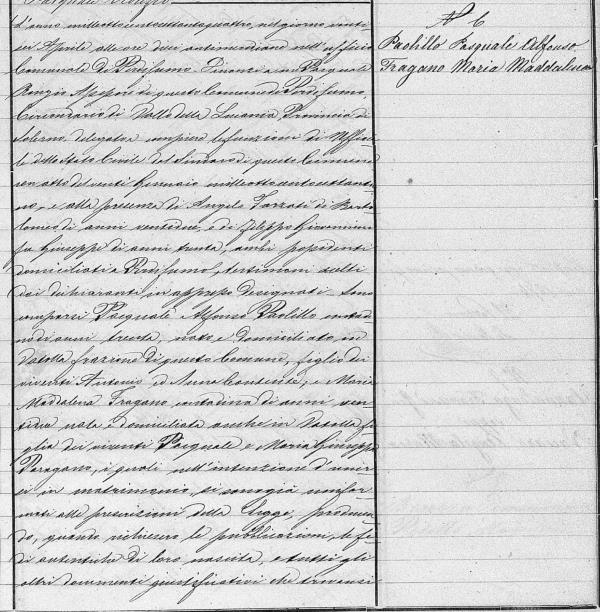 N° 6
Paolillo Pasquale Alfonso
Fragano Maria Maddalena
L'anno milleottocentottantaquattro, nel giorno venti
sei Aprile alle ore dieci antimeridiane nell'Ufficio
Comunale di Perdifumo. Innanzi a me Pasquale
Assessore di questo Comune di Perdifumo
Circondario di Vallo della Lucania Provincia di
Salerno delegato compiere le funzioni di Uffici
le dello Stato Civile dal Sindaco di questo Comune
con atto del venti Gennaio milleottocentottantu
no, e alla presenza di Angelo Tarzati di Barto
lomeo di anni ventidue, e di Filippo
fu Giuseppe di anni trenta, ambi possidenti
domiciliati a Perdifumo, testimoni scelti
dai dichiaranti in appresso designati. Sono
comparsi Pasquale Alfonso Paolillo conta
dino di anni trenta, nato e domiciliato in
Vatolla frazione di questo Comune, figlio dei
viventi Antonio ed Anna Contente, e Maria
Maddalena Fragano contadina di anni ven
tidue nata e domiciliata anche in Vatolla fi
glia dei viventi Pasquale e Maria Giuseppa
Paragano, i quali nell'intenzione d'unir
si in matrimonio, si son già unifor
mati alle prescrizioni della Legge, producen
do, quanto richiesero le pubblicazioni, le fe
di autentiche di loro nascita, e tutti gli
altri documenti giustificativi che trovansi